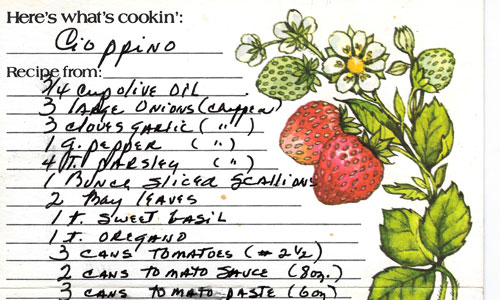 Here's what's cookin':
Cioppino
Recipe from:
3/4 cup olive oil
3 large onions (chopped)
3 cloves garlic ( " )
1 g. pepper ( " )
4 T. parsley ( " )
1 Bunch sliced scallions
2 Bay leaves
1 t. sweet basil
1 t. oregano
3 cans tomatoes (# 2 1/2)
2 cans tomato sauce (8oz.)
3 cans tomato paste (6oz)